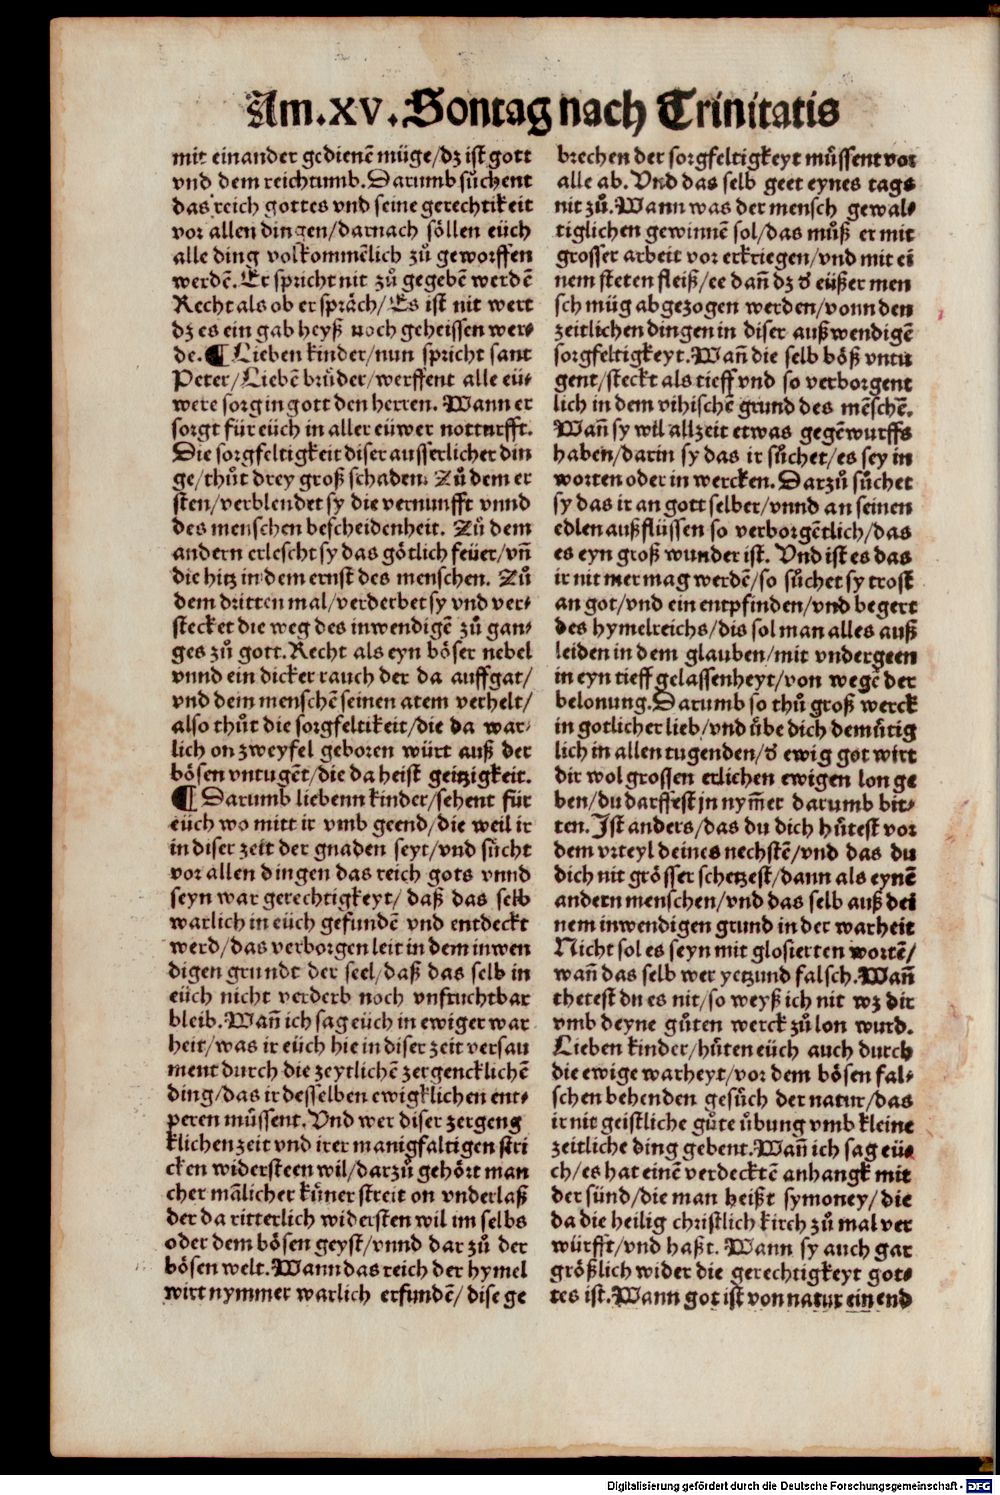 Am.XV.Sontag nach Trinitatis
mit einander gedienē müge/dz ist gott
vnd dem reichtumb.Darumb sůchent
das reich gottes vnd seine gerechtikeit
vor allen dingen/darnach söllen eüch
alle ding volkommēlich zů geworffen
werdē.Er spricht nit zů gegebē werdē
Recht als ob er spräch/Es ist nit wert
dz es ein gab heyß noch geheissen wer⸗
de.¶ Lieben kinder/nun spricht sant
Peter/Liebē brůder/werffent alle eü⸗
were sorg in gott den herren. Wann er
sorgt für eüch in aller eüwer notturfft.
Die sorgfeltigkeit diser ausserlicher din
ge/thůt drey groß schaden. Zů dem er
sten/verblendet sy die vernunfft vnnd
des menschen bescheidenheit. Zů dem
andern erlescht sy das götlich feüer/vñ
die hitz in dem ernst des menschen. Zů
dem dritten mal/verderbet sy vnd ver⸗
stecket die weg des inwendigē zů gan⸗
ges zů gott.Recht als eyn böser nebel
vnnd ein dicker rauch der da auffgat/
vnd dem menschē seinen atem verhelt/
also thůt die sorgfeltikeit/die da war⸗
lich on zweyfel geboren würt auß der
bösen vntugēt/die da heist geitzigkeit.
¶ Darumb liebenn kinder/sehent für
eüch wo mitt ir vmb geend/die weil ir
in diser zeit der gnaden seyt/vnd sücht
vor allen dingen das reich gots vnnd
seyn war gerechtigkeyt/ daß das selb
warlich in eüch gefundē vnd entdeckt
werd/das verborgen leit in dem inwen
digen grundt der seel/daß das selb in
eüch nicht verderb noch vnfruchtbar
bleib.Wañ ich sag eüch in ewiger war
heit/was ir eüch hie in diser zeit versau
ment durch die zeytlichē zergencklichē
ding/das ir desselben ewigklichen ent⸗
peren můssent.Vnd wer diser zergeng
klichen zeit vnd irer manigfaltigen stri
cken widersteen wil/darzů gehört man
cher mālicher kůner streit on vnderlaß
der da ritterlich widersten wil im selbs
oder dem bösen geyst/vnnd dar zů der
bösen welt.Wann das reich der hymel
wirt nymmer warlich erfundē/dise ge
brechen der sorgfeltigkeyt můssent vor
alle ab.Vnd das selb geet eynes tags
nit zů.Wann was der mensch gewal⸗
tiglichen gewinnē sol/das můß er mit
grosser arbeit vor erkriegen/vnd mit ei
nem steten fleiß/ee dañ dz d' eüßer men
sch müg abgezogen werden/vonn den
zeitlichen dingen in diser außwendigē
sorgfeltigkeyt.Wañ die selb böß vntu
gent/steckt als tieff vnd so verborgent
lich in dem vihischē grund des mēschē.
Wañ sy wil allzeit etwas gegēwurffs
haben/darin sy das ir sůchet/es sey in
worten oder in wercken.Darzů sůchet
sy das ir an gott selber/vnnd an seinen
edlen außflüssen so verborgētlich/das
es eyn groß wunder ist. Vnd ist es das
ir nit mer mag werdē/so sůchet sy trost
an got/vnd ein entpfinden/vnd begert
des hymelreichs/dis sol man alles auß
leiden in dem glauben/mit vndergeen
in eyn tieff gelassenheyt/von wegē der
belonung.Darumb so thů groß werck
in gotlicher lieb/vnd ůbe dich demůtig
lich in allen tugenden/d' ewig got wirt
dir wol grossen erlichen ewigen lon ge
ben/du darffest jn nym̄er darumb bit⸗
ten.Ist anders/das du dich hůtest vor
dem vrteyl deines nechstē/vnd das du
dich nit grösser schetzest/dann als eynē
andern menschen/vnd das selb auß dei
nem inwendigen grund in der warheit
Nicht sol es seyn mit glosierten wortē/
wañ das selb wer yetzund falsch.Wañ
thetest du es nit/so weyß ich nit wz dir
vmb deyne gůten werck zů lon wurd.
Lieben kinder/hůten eüch auch durch
die ewige warheyt/vor dem bösen fal⸗
schen behenden gesůch der natur/das
ir nit geistliche gůte ůbung vmb kleine
zeitliche ding gebent.Wañ ich sag eü⸗
ch/es hat einē verdecktē anhangk mit
der sünd/die man heißt symoney/die
da die heilig christlich kirch zů mal ver
würfft/vnd haßt. Wann sy auch gar
größlich wider die gerechtigkeyt got⸗
tes ist.Wann got ist von natur ein end
Digitalisierung gefördert durch die Deutsche Forschungsgemeinschaft - DFG